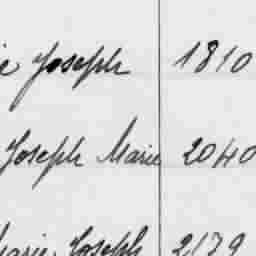 Joseph 1810
Joseph Marie 2040
Marie Joseph 2179